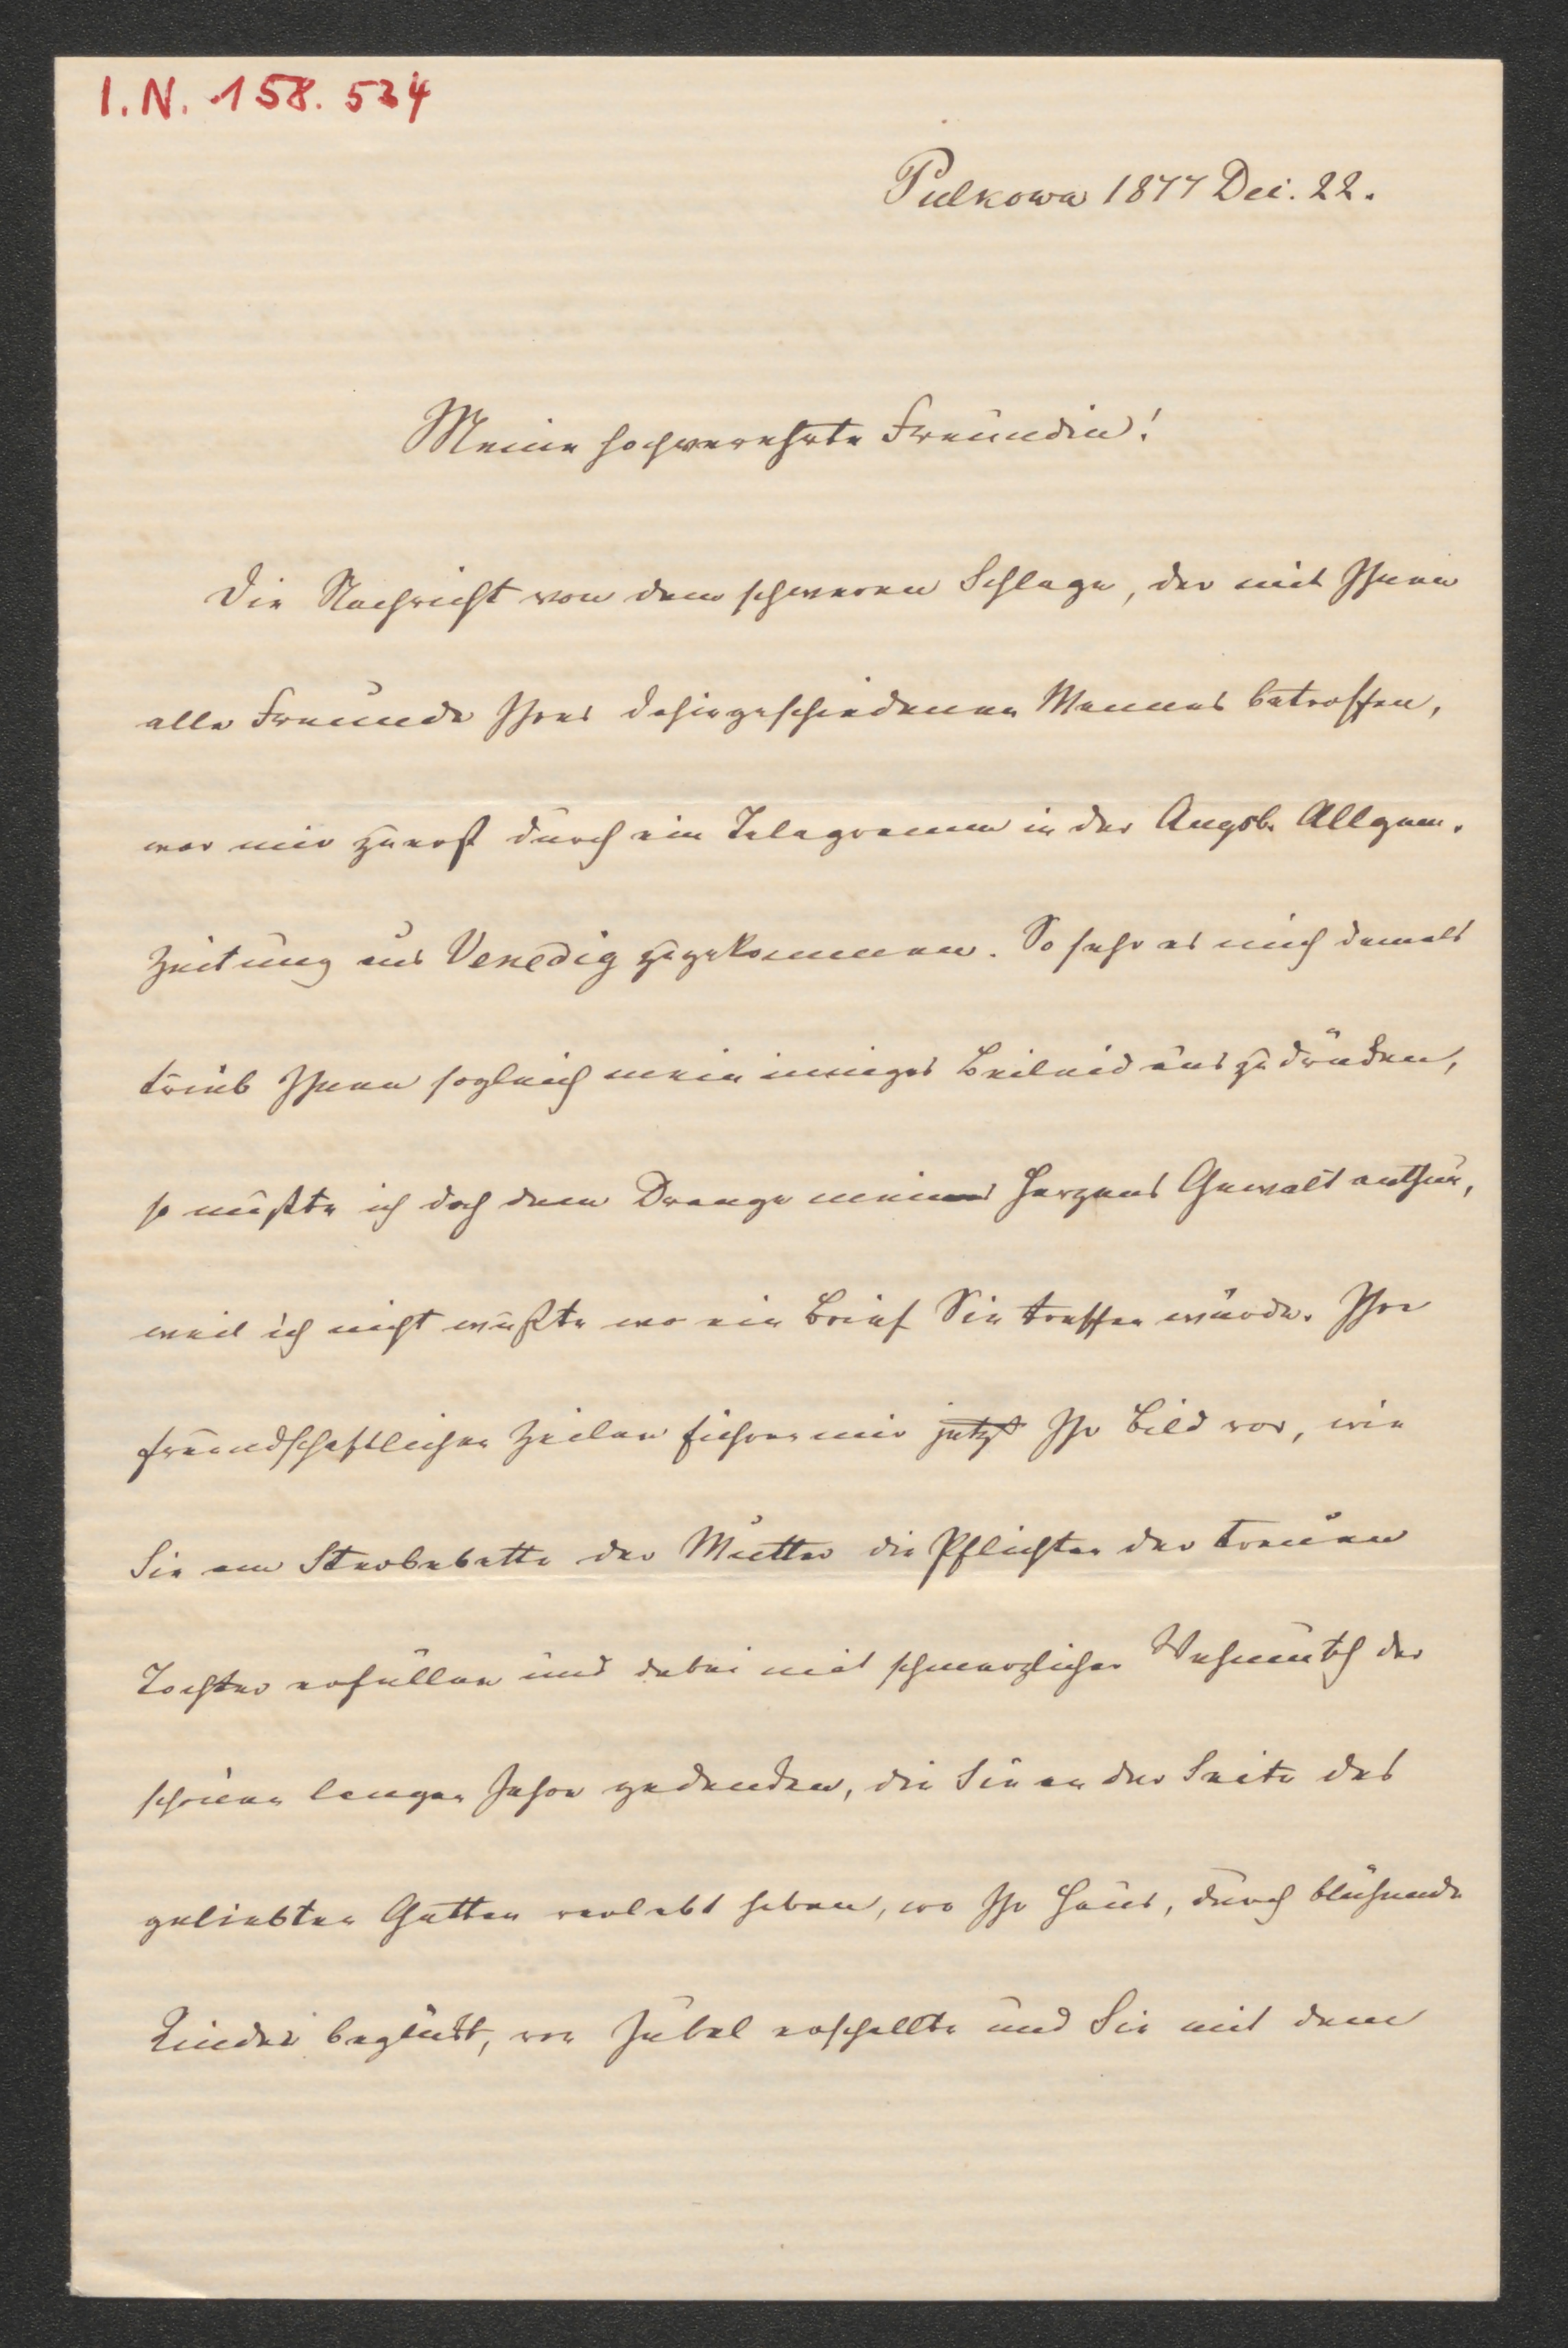 I.N. 158.534
Pulkowa 1877 Dec. 22.
Meine hochverehrte Freundin!
Die Nachricht von dem schweren Schlage, der mit Ihnen
alle Freunde Ihres dahingeschiedenen Mannes betroffen,
war mir zuerst durch ein Telegramm in der Augsb. Allgem.
Zeitung aus Venedig zugekommen. So sehr es mich damals
trieb Ihnen sogleich mein inniges Beileid auszudrücken,
so mußte ich doch dem Drange meines Herzens Gewalt anthun,
weil ich nicht wußte wo ein Brief Sie treffen würde. Ihre
freundschaftlichen Zeilen führen mir jetzt Ihr Bild vor, wie
Sie am Sterbebette der Mutter die Pflichten der treuen
Tochter erfüllen und dabei mit schmerzlicher Wehmuth der
schönen langen Jahre gedenken, die Sie an der Seite des
geliebten Gatten verlebt haben, wo Ihr Haus, durch blühende
Kinder beglückt, von Jubel erschallte und Sie mit dem